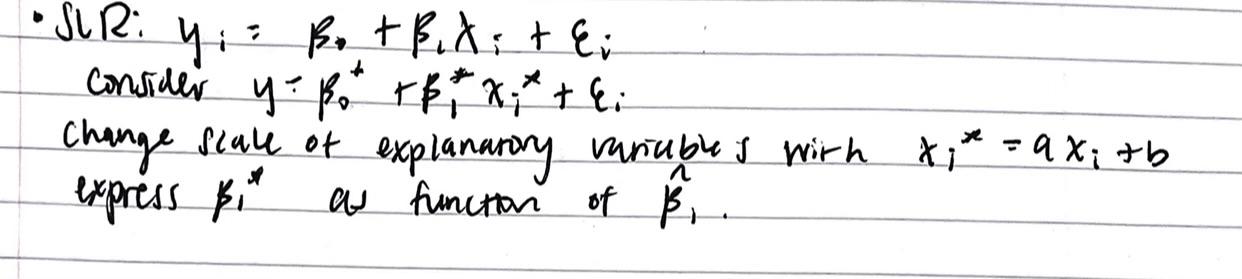 • SLR: yᵢ = β₀ + β₁xᵢ + εᵢ
Consider y = β₀* + β₁* xᵢ* + εᵢ
Change scale of explanatory variables with xᵢ* = axᵢ + b
express β₁* as function of β̂₁.